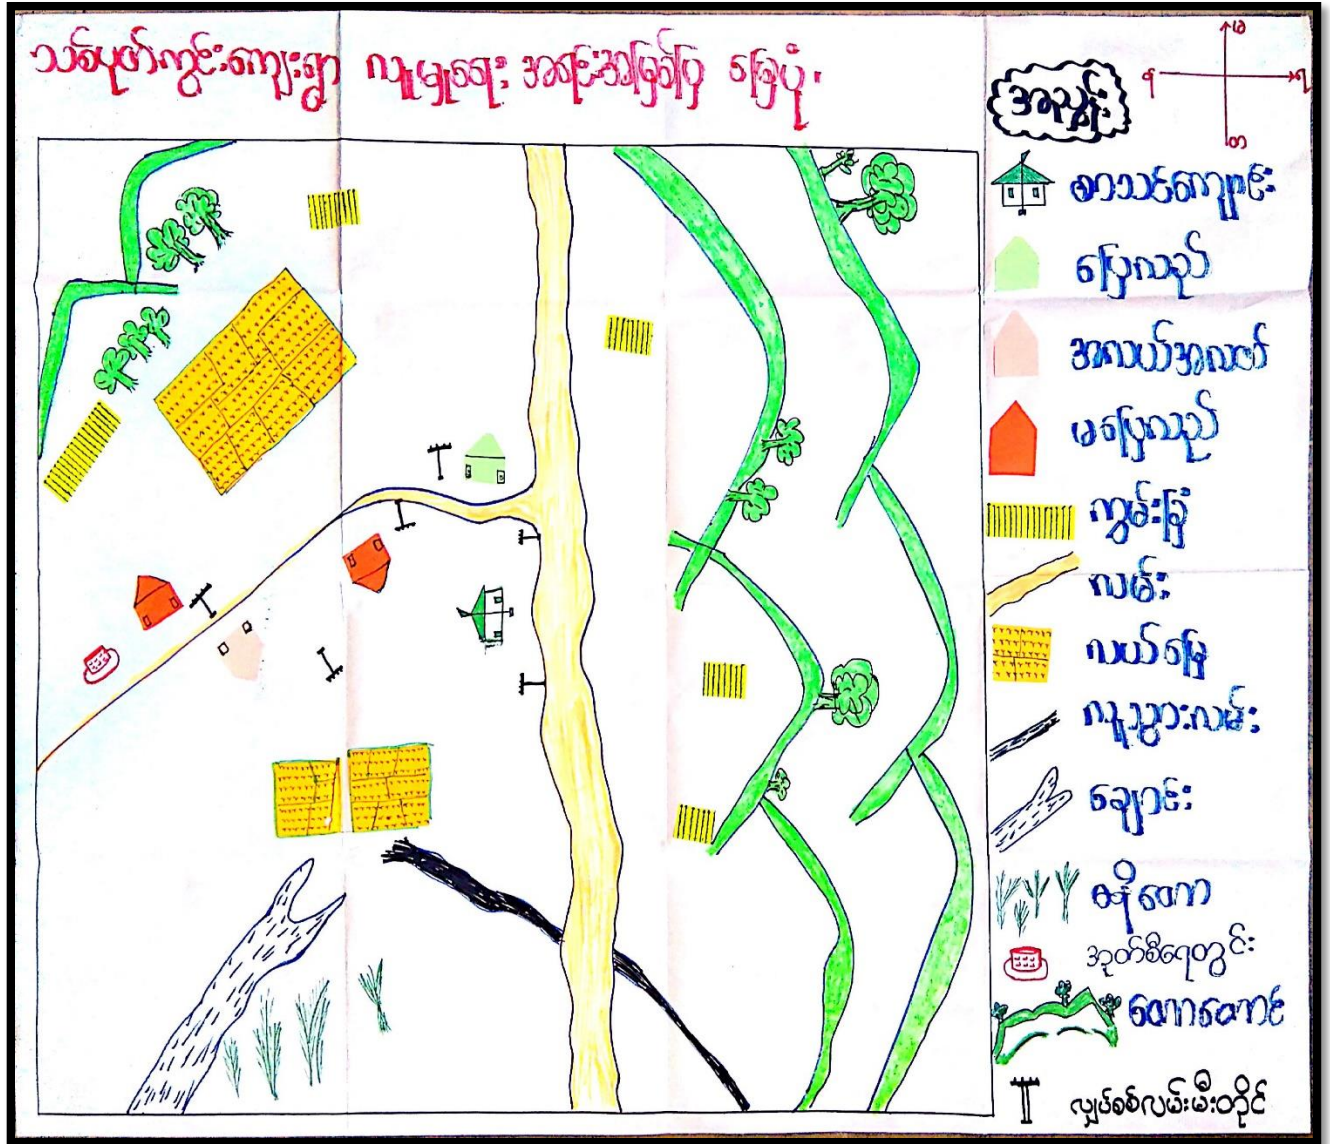 သစ်ပုတ်ကွင်းကျေးရွာ လူမှုရေး အရင်းအမြစ်ပြ မြေပုံ။
မ
န
ရ
တ
အညွှန်း
စာသင်ကျောင်း
ပြေလည်
အလယ်အလတ်
မပြေလည်
ကွမ်းခြံ
လမ်း
လယ်မြေ
လူသွားလမ်း
ချောင်း
ဓနိတော
အုတ်စီရေတွင်း
တောတောင်
လျှပ်စစ်လမ်းမီးတိုင်